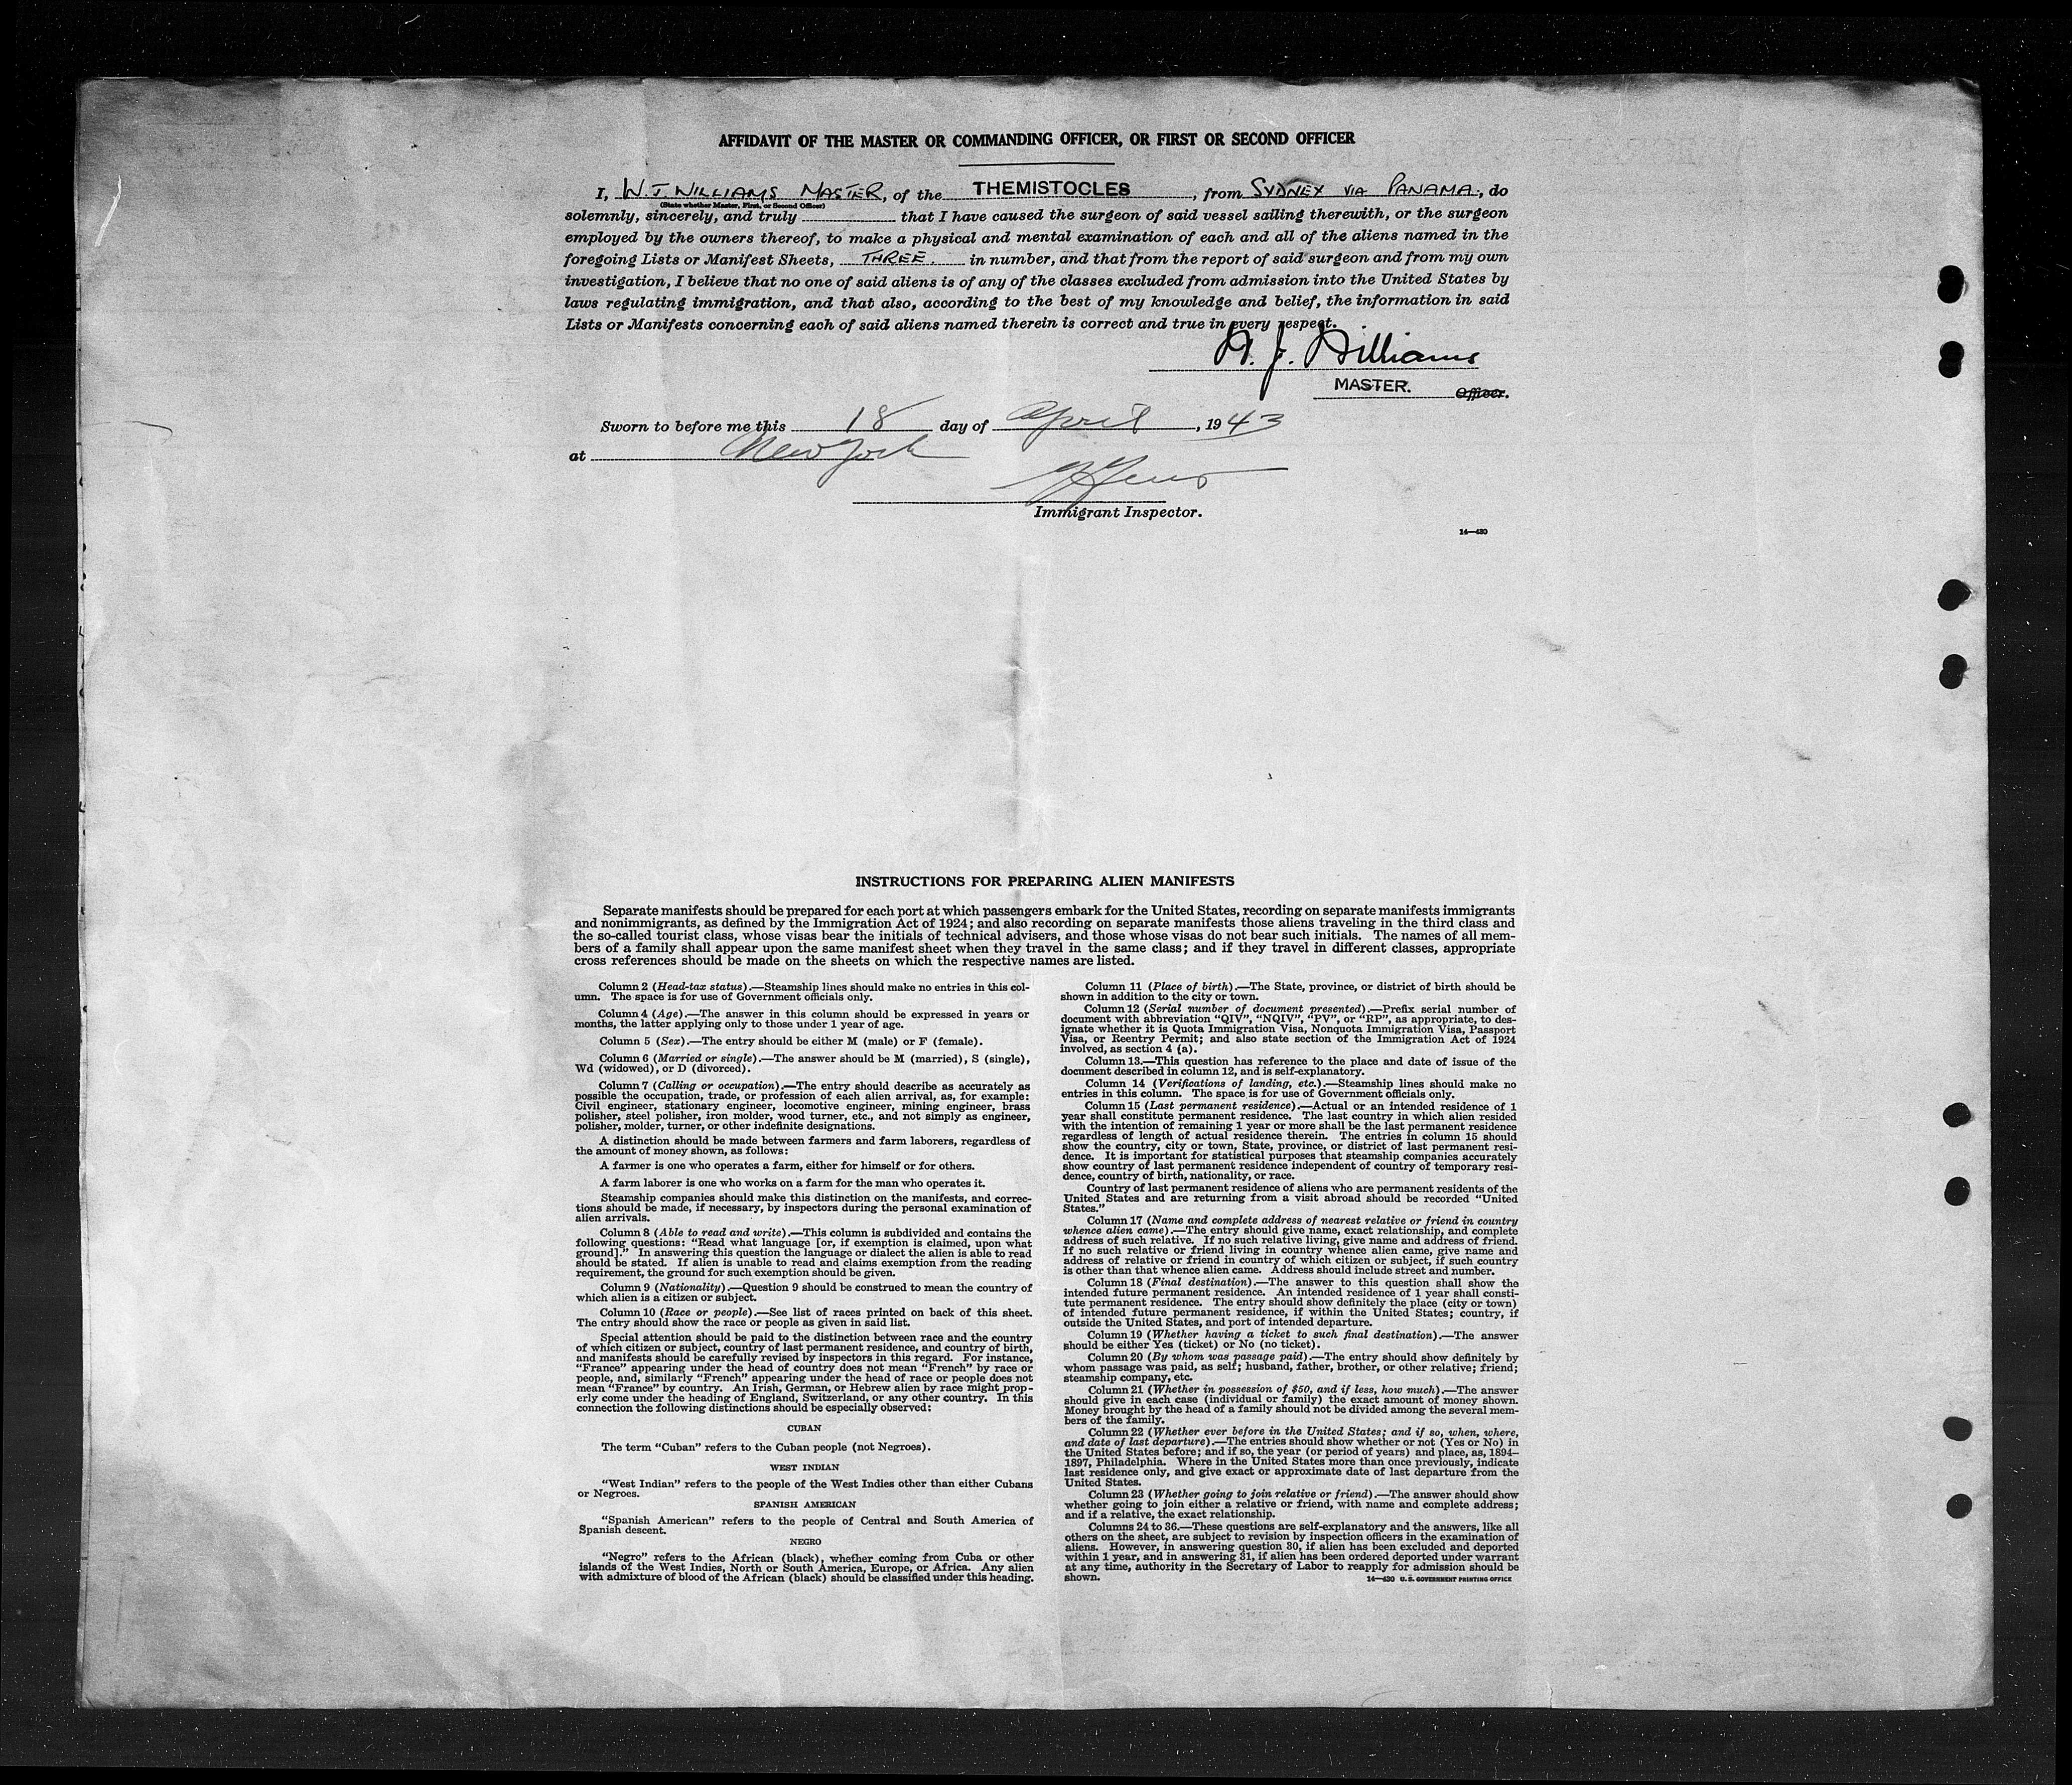 AFFIDAVIT OF THE MASTER OR COMMANDING OFFICER, OR FIRST OR SECOND OFFICER
I, W. J. WILLIAMS MASTER, of the THEMISTOCLES, from SYDNEY VIA PANAMA, do
(State whether Master, First, or Second Officer)
solemnly, sincerely, and truly that I have caused the surgeon of said vessel sailing therewith, or the surgeon
employed by the owners thereof, to make a physical and mental examination of each and all of the aliens named in the
foregoing Lists or Manifest Sheets, THREE. in number, and that from the report of said surgeon and from my own
investigation, I believe that no one of said aliens is of any of the classes excluded from admission into the United States by
laws regulating immigration, and that also, according to the best of my knowledge and belief, the information in said
Lists or Manifests concerning each of said aliens named therein is correct and true in every respect.
W. J. Williams
MASTER. Officer.
Sworn to before me this 18 day of April, 1943
at New York
Immigrant Inspector.
14—430
INSTRUCTIONS FOR PREPARING ALIEN MANIFESTS
Separate manifests should be prepared for each port at which passengers embark for the United States, recording on separate manifests immigrants
and nonimmigrants, as defined by the Immigration Act of 1924; and also recording on separate manifests those aliens traveling in the third class and
the so-called tourist class, whose visas bear the initials of technical advisers, and those whose visas do not bear such initials. The names of all mem-
bers of a family shall appear upon the same manifest sheet when they travel in the same class; and if they travel in different classes, appropriate
cross references should be made on the sheets on which the respective names are listed.
Column 2 (Head-tax status).—Steamship lines should make no entries in this col-
umn. The space is for use of Government officials only.
Column 4 (Age).—The answer in this column should be expressed in years or
months, the latter applying only to those under 1 year of age.
Column 5 (Sex).—The entry should be either M (male) or F (female).
Column 6 (Married or single).—The answer should be M (married), S (single),
Wd (widowed), or D (divorced).
Column 7 (Calling or occupation).—The entry should describe as accurately as
possible the occupation, trade, or profession of each alien arrival, as, for example:
Civil engineer, stationary engineer, locomotive engineer, mining engineer, brass
polisher, steel polisher, iron molder, wood turner, etc., and not simply as engineer,
polisher, molder, turner, or other indefinite designations.
A distinction should be made between farmers and farm laborers, regardless of
the amount of money shown, as follows:
A farmer is one who operates a farm, either for himself or for others.
A farm laborer is one who works on a farm for the man who operates it.
Steamship companies should make this distinction on the manifests, and correc-
tions should be made, if necessary, by inspectors during the personal examination of
alien arrivals.
Column 8 (Able to read and write).—This column is subdivided and contains the
following questions: “Read what language [or, if exemption is claimed, upon what
ground].” In answering this question the language or dialect the alien is able to read
should be stated. If alien is unable to read and claims exemption from the reading
requirement, the ground for such exemption should be given.
Column 9 (Nationality).—Question 9 should be construed to mean the country of
which alien is a citizen or subject.
Column 10 (Race or people).—See list of races printed on back of this sheet.
The entry should show the race or people as given in said list.
Special attention should be paid to the distinction between race and the country
of which citizen or subject, country of last permanent residence, and country of birth,
and manifests should be carefully revised by inspectors in this regard. For instance,
“France” appearing under the head of country does not mean “French” by race or
people, and, similarly “French” appearing under the head of race or people does not
mean “France” by country. An Irish, German, or Hebrew alien by race might prop-
erly come under the heading of England, Switzerland, or any other country. In this
connection the following distinctions should be especially observed:
CUBAN
The term “Cuban” refers to the Cuban people (not Negroes).
WEST INDIAN
“West Indian” refers to the people of the West Indies other than either Cubans
or Negroes.
SPANISH AMERICAN
“Spanish American” refers to the people of Central and South America of
Spanish descent.
NEGRO
“Negro” refers to the African (black), whether coming from Cuba or other
islands of the West Indies, North or South America, Europe, or Africa. Any alien
with admixture of blood of the African (black) should be classified under this heading.
Column 11 (Place of birth).—The State, province, or district of birth should be
shown in addition to the city or town.
Column 12 (Serial number of document presented).—Prefix serial number of
document with abbreviation “QIV”, “NQIV”, “PV”, or “RP”, as appropriate, to des-
ignate whether it is Quota Immigration Visa, Nonquota Immigration Visa, Passport
Visa, or Reentry Permit; and also state section of the Immigration Act of 1924
involved, as section 4 (a).
Column 13.—This question has reference to the place and date of issue of the
document described in column 12, and is self-explanatory.
Column 14 (Verifications of landing, etc.).—Steamship lines should make no
entries in this column. The space is for use of Government officials only.
Column 15 (Last permanent residence).—Actual or an intended residence of 1
year shall constitute permanent residence. The last country in which alien resided
with the intention of remaining 1 year or more shall be the last permanent residence
regardless of length of actual residence therein. The entries in column 15 should
show the country, city or town, State, province, or district of last permanent resi-
dence. It is important for statistical purposes that steamship companies accurately
show country of last permanent residence independent of country of temporary resi-
dence, country of birth, nationality, or race.
Country of last permanent residence of aliens who are permanent residents of the
United States and are returning from a visit abroad should be recorded “United
States.”
Column 17 (Name and complete address of nearest relative or friend in country
whence alien came).—The entry should give name, exact relationship, and complete
address of such relative. If no such relative living, give name and address of friend.
If no such relative or friend living in country whence alien came, give name and
address of relative or friend in country of which citizen or subject, if such country
is other than that whence alien came. Address should include street and number.
Column 18 (Final destination).—The answer to this question shall show the
intended future permanent residence. An intended residence of 1 year shall consti-
tute permanent residence. The entry should show definitely the place (city or town)
of intended future permanent residence, if within the United States; country, if
outside the United States, and port of intended departure.
Column 19 (Whether having a ticket to such final destination).—The answer
should be either Yes (ticket) or No (no ticket).
Column 20 (By whom was passage paid).—The entry should show definitely by
whom passage was paid, as self; husband, father, brother, or other relative; friend;
steamship company, etc.
Column 21 (Whether in possession of $50, and if less, how much).—The answer
should give in each case (individual or family) the exact amount of money shown.
Money brought by the head of a family should not be divided among the several mem-
bers of the family.
Column 22 (Whether ever before in the United States; and if so, when, where,
and date of last departure).—The entries should show whether or not (Yes or No) in
the United States before; and if so, the year (or period of years) and place, as, 1894–
1897, Philadelphia. Where in the United States more than once previously, indicate
last residence only, and give exact or approximate date of last departure from the
United States.
Column 23 (Whether going to join relative or friend).—The answer should show
whether going to join either a relative or friend, with name and complete address;
and if a relative, the exact relationship.
Columns 24 to 36.—These questions are self-explanatory and the answers, like all
others on the sheet, are subject to revision by inspection officers in the examination of
aliens. However, in answering question 30, if alien has been excluded and deported
within 1 year, and in answering 31, if alien has been ordered deported under warrant
at any time, authority in the Secretary of Labor to reapply for admission should be
shown.
14—430 U. S. GOVERNMENT PRINTING OFFICE